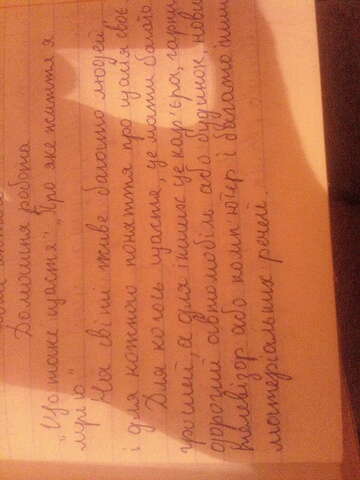 Домашня робота
"Що таке щастя" "Про яке життя я
мрію"
На світі живе багато людей
і для кожного поняття про щастя своє.
Для когось щастя, це мати багато
грошей, а для інших це кар'єра, гарний
дорогий автомобіль або будинок, новий
телевізор або комп'ютер і багато інших
матеріальних речей.